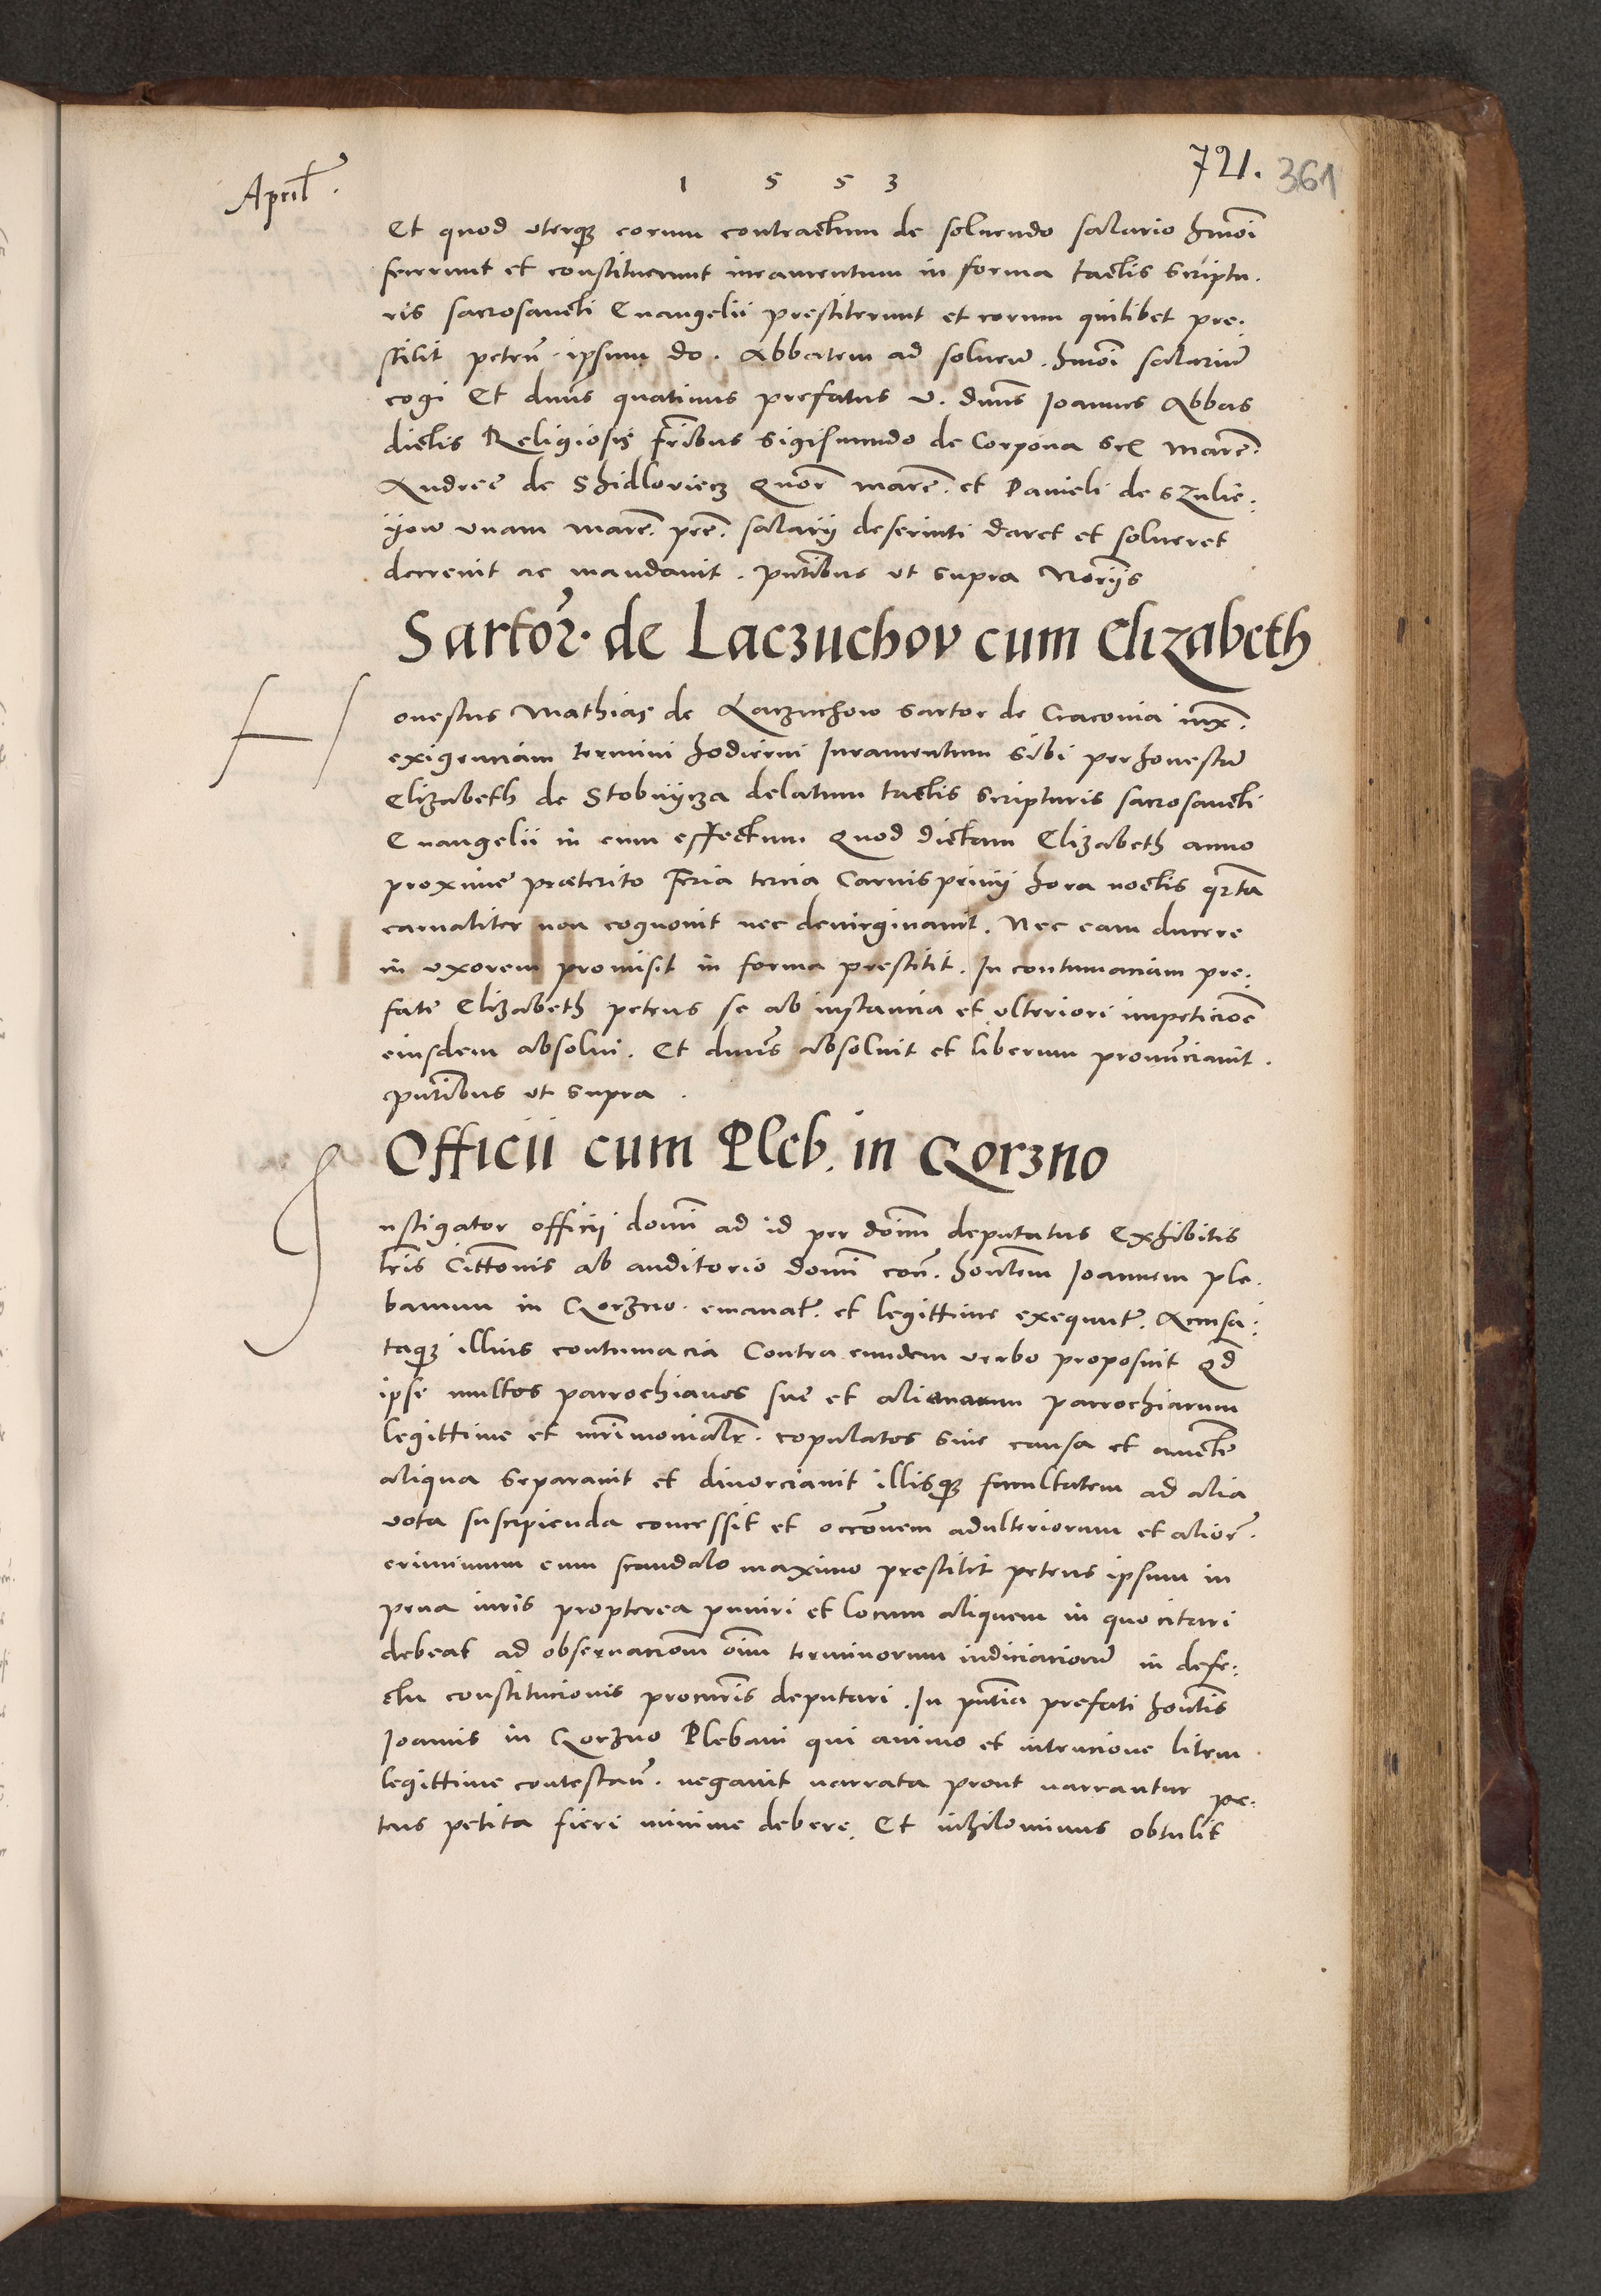 April.
1 5 5 3
721.
361
Et quod vterq3 eorum contractum de soluendo salario hmoi
fecerunt et constituerunt iuramentum in forma tactis scriptu.
ris sacrosancti Euangelii prestiterunt et eorum quilibet pre.
stitit peten. ipsum do. Abbatem ad soluend. hmoi salariu
cogi Et dnus quatinus prefatus v. dnus Joannes Abbas
dictis Religiosis fribus Sigismundo de Corpona sex marc.
Andree de Shidloviecz Quor marc. et Danieli de Szulie.
yow vnam marc. pre. salarij deseruiti daret et solueret
decreuit ac mandauit. pntibus vt supra Norijs
Sartor. de Laczuchov cum Elizabeth
Honestus Mathias de Laczuchow Sartor de Cracovia iux.
exigenciam termini hodierni Iuramentum sibi per honestu
Elizabeth de Stobnycza delatum tactis scripturis sacrosancti
Euangelii in eum effectum Quod dictam Elizabeth anno
proxime præterito Feria tercia Carnispriuij hora noctis qrta
carnaliter non cognouit nec deuirginauit. Nec eam ducere
in vxorem promisit in forma prestitit. In contumaciam pre.
fate Elizabeth petens se ab instancia et vlteriori impeticioe
eiusdem absolui. Et dnus absoluit et liberum pronunciauit.
pntibus vt supra.
Officii cum Pleb. in Qorzno
Instigator officij domi ad id per doim deputatus Exhibitis
lris Cittonis ab auditorio domi con. hontem Joannem ple.
banum in Qorzno emanat. et legittime exequut. Accusa.
taq3 illius contumacia Contra eundem verbo proposuit Qd
ipse multos parrochianos sue et alienarum parrochiarum
legittime et mrimonialr. copulatos sine causa et aucte
aliqua separauit et diuorciauit illisq3 facultatem ad alia
vota suscipienda concessit et occonem adulteriorum et alior.
criminum cum scandalo maximo prestitit petens ipsum in
pena iuris propterea puniri et locum aliquem in quo citari
debeat ad obseruaciom oim terminorum iudiciacioru in defe.
ctu constitucionis procuris deputari. In pntia prefati hontis
Joannis in Qorzno Plebani qui animo et intencione litem
legittime contestan. negauit narrata prout narrantur pe.
tens petita fieri minime debere. Et nihilominus obtulit